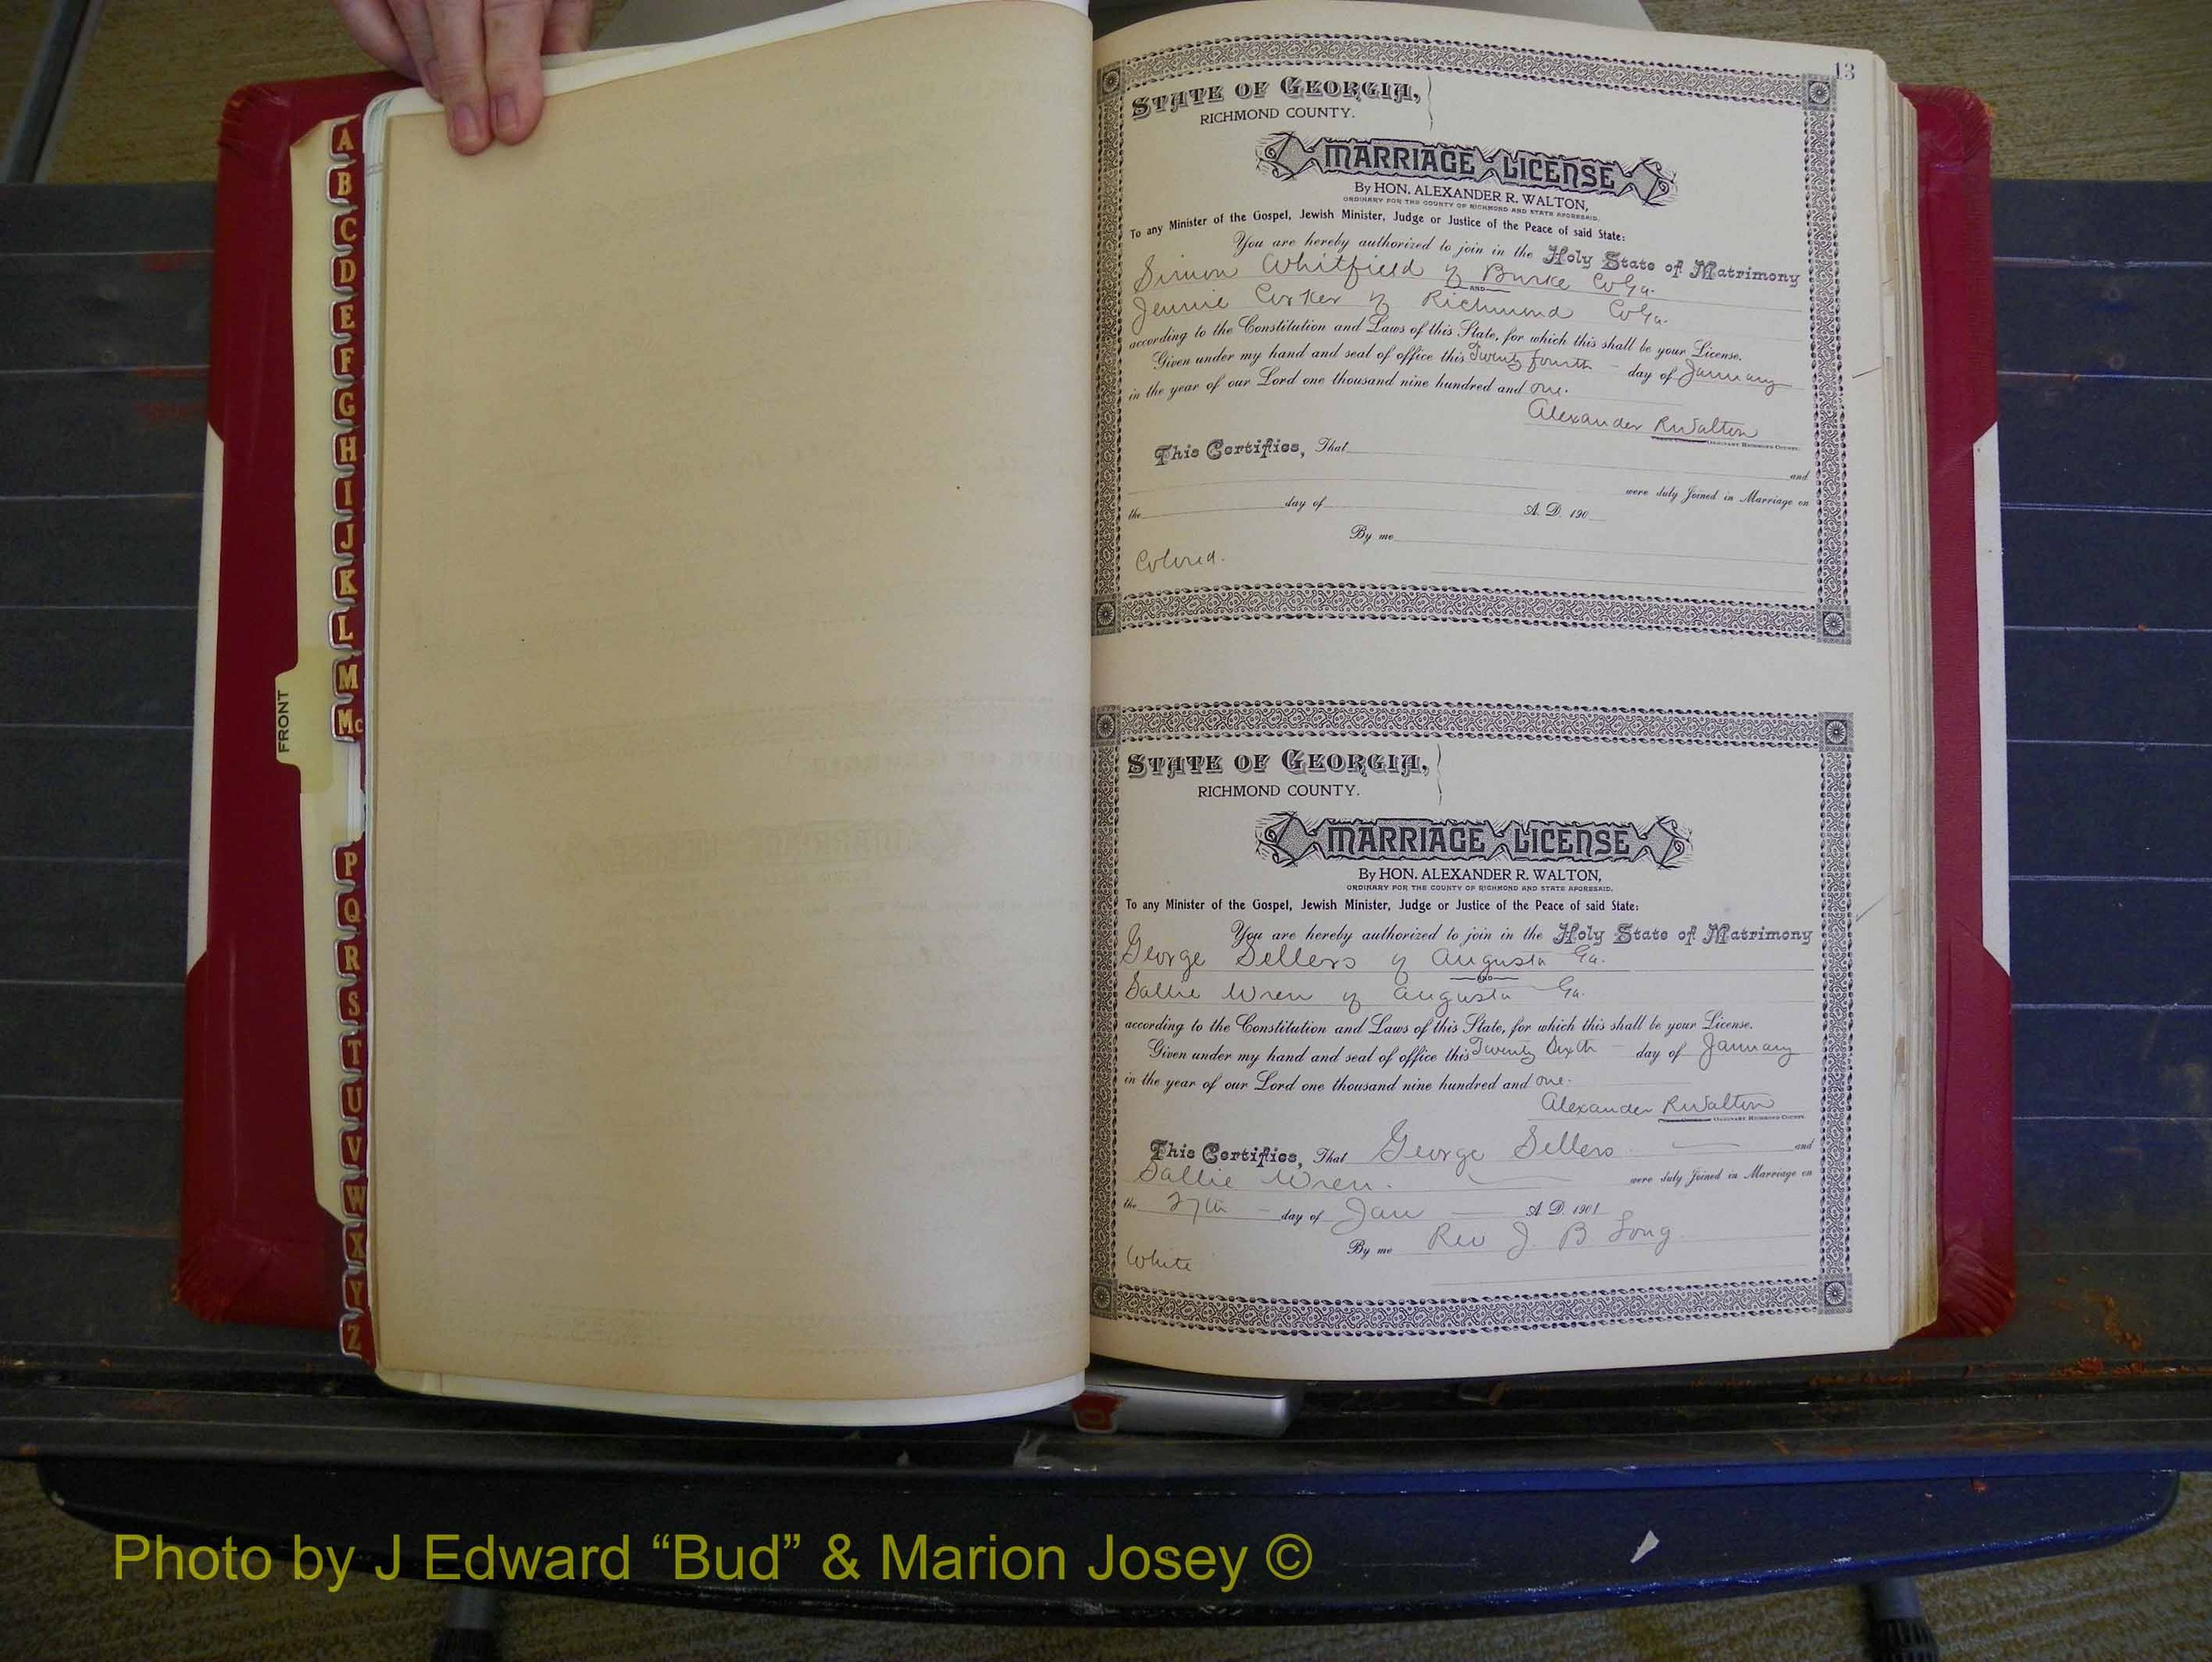 A
B
C
D
E
F
G
H
I
J
K
L
M
Mc
P
Q
R
S
T
U
V
W
X
Y
Z
FRONT
13
STATE OF GEORGIA,
RICHMOND COUNTY.
MARRIAGE LICENSE
By HON. ALEXANDER R. WALTON,
ORDINARY FOR THE COUNTY OF RICHMOND AND STATE AFORESAID.
To any Minister of the Gospel, Jewish Minister, Judge or Justice of the Peace of said State:
You are hereby authorized to join in the Holy State of Matrimony
Simon Whitfield of Burke Co Ga.
AND
Jennie Corker of Richmond Co Ga.
according to the Constitution and Laws of this State, for which this shall be your License.
Given under my hand and seal of office this Twenty fourth - day of January
in the year of our Lord one thousand nine hundred and one.
Alexander R Walton
ORDINARY RICHMOND COUNTY.
This Certifies, That
and
were duly Joined in Marriage on
the day of A. D. 190
By me
Colored.
STATE OF GEORGIA,
RICHMOND COUNTY.
MARRIAGE LICENSE
By HON. ALEXANDER R. WALTON,
ORDINARY FOR THE COUNTY OF RICHMOND AND STATE AFORESAID.
To any Minister of the Gospel, Jewish Minister, Judge or Justice of the Peace of said State:
You are hereby authorized to join in the Holy State of Matrimony
George Sellers of Augusta Ga.
AND
Sallie Wren of Augusta Ga.
according to the Constitution and Laws of this State, for which this shall be your License.
Given under my hand and seal of office this Twenty Sixth - day of January
in the year of our Lord one thousand nine hundred and one.
Alexander R Walton
ORDINARY RICHMOND COUNTY.
This Certifies, That George Sellers and
Sallie Wren. were duly Joined in Marriage on
the 27th - day of Jan A. D. 1901
By me Rev J. B Long
White
O
Photo by J Edward “Bud” & Marion Josey ©